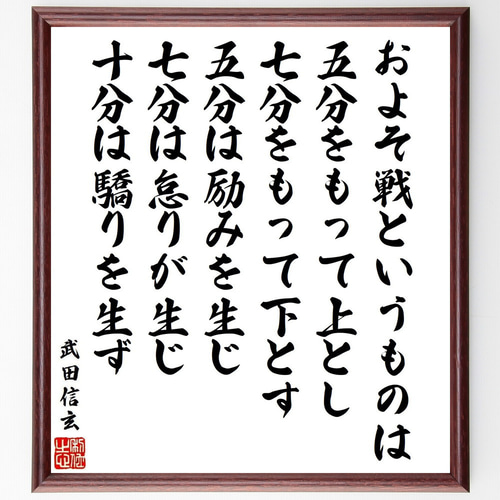 およそ戦というものは
五分をもって上とし
七分をもって下とす
五分は励みを生じ
七分は怠りが生じ
十分は驕りを生ず
武田信玄